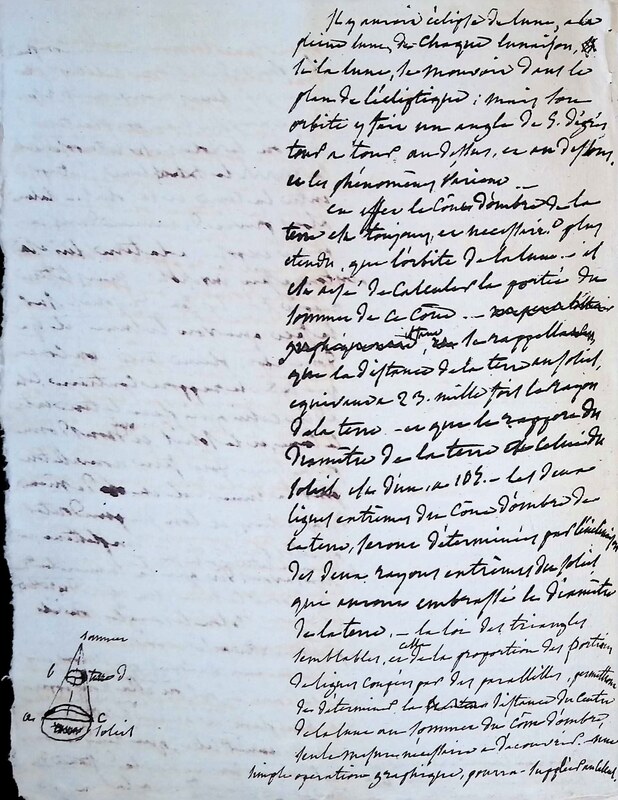 Il y auroit éclipse de lune, a la
pleine lune, de chaque lunaison,
si la lune, se mouvoir dans le
plan de l'écliptique; mais son
orbite y fait un angle de 5. degrés
tour a tour au dessus, et au dessous,
et les phénomènes varient —
En effet le Cône d'ombre de la
terre est toujours, et nécessair.t plus
etendu, que l'orbite de la lune. — il
est aisé de calculer la portée du
sommet de ce cône. —
se rappellant
que la distance de la terre au soleil,
equivaut a 23. mille fois le rayon
de la terre — et que le rapport du
Diamètre de la terre a celui du
soleil est d'un, a 109. — les deux
lignes extrêmes du Cône d'ombre de
la terre, seront déterminées par
des deux rayons extrêmes du soleil
qui auront embrassé le Diamètre
de la terre. — la loi des triangles
semblables, et celle de la proportion des portions
de lignes coupées par des parallèles, permettent
de determiner la distance du Centre
de la lune au sommet du Cône d'ombre,
seule mesure nécessaire a Découvrir. une
simple operation graphique, pourra suppléer au calcul.
sommet
b terre d.
a C
Soleil